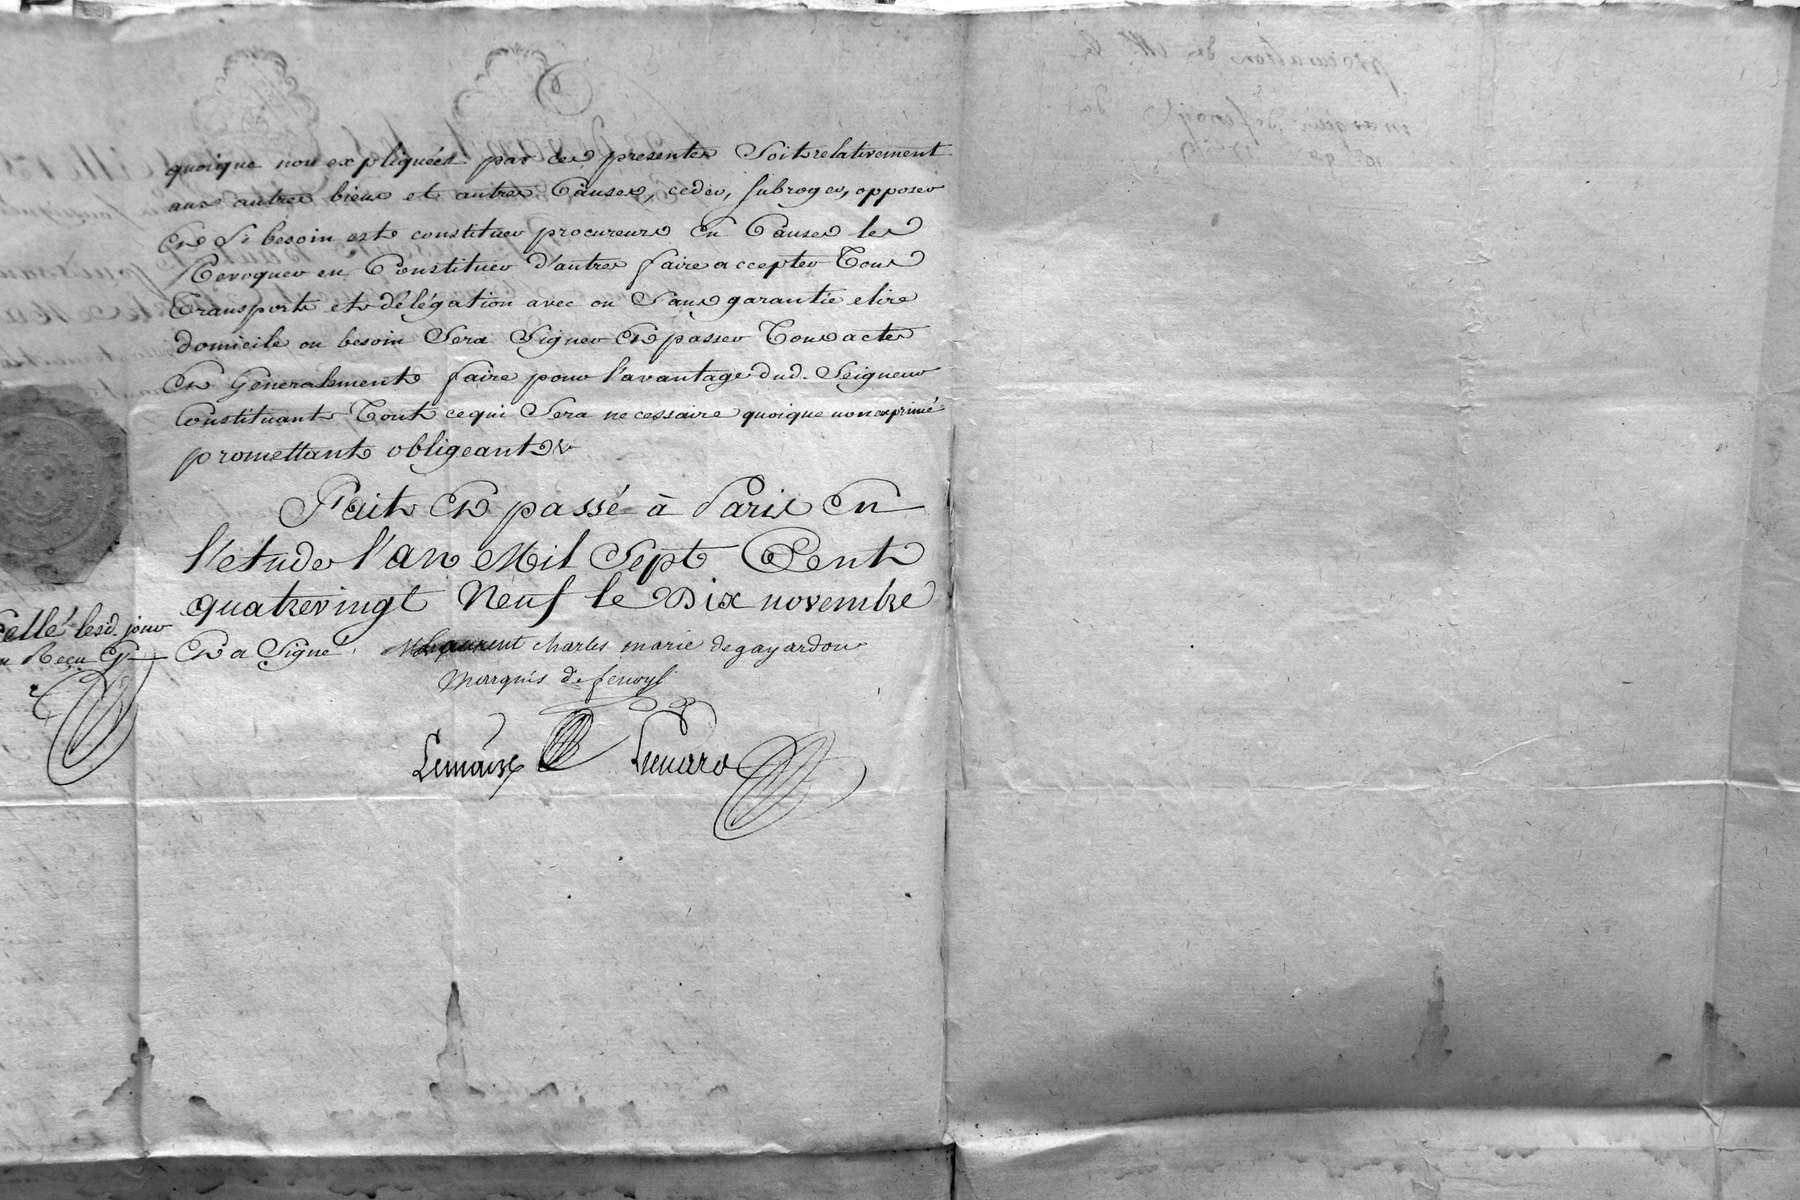 quoique non expliquées par ces presentes Soit relativement
aux autres biens et autres Causes, ceder, subroger, opposer
et Si besoin est constituer procureurs En Causes les
Revoquer en Constituer d'autres faire accepter Tous
Transports et délégation avec ou Sans garantie elire
domicile ou besoin Sera Signer et passer Tous actes
et Generalement faire pour l'avantage dud. Seigneur
Constituant Tout ce qui Sera necessaire quoique non exprimé
promettant obligeant &
Fait et passé à Paris En
l'etude l'an Mil Sept Cent
quatrevingt Neuf le Dix novembre
Et a Signé. Laurent charles marie degayardon
Marquis de fenoyl
Lemoine Lienard
scellé lesd. jour
Reçu
procuration de Mr le
marquis de fenoyl